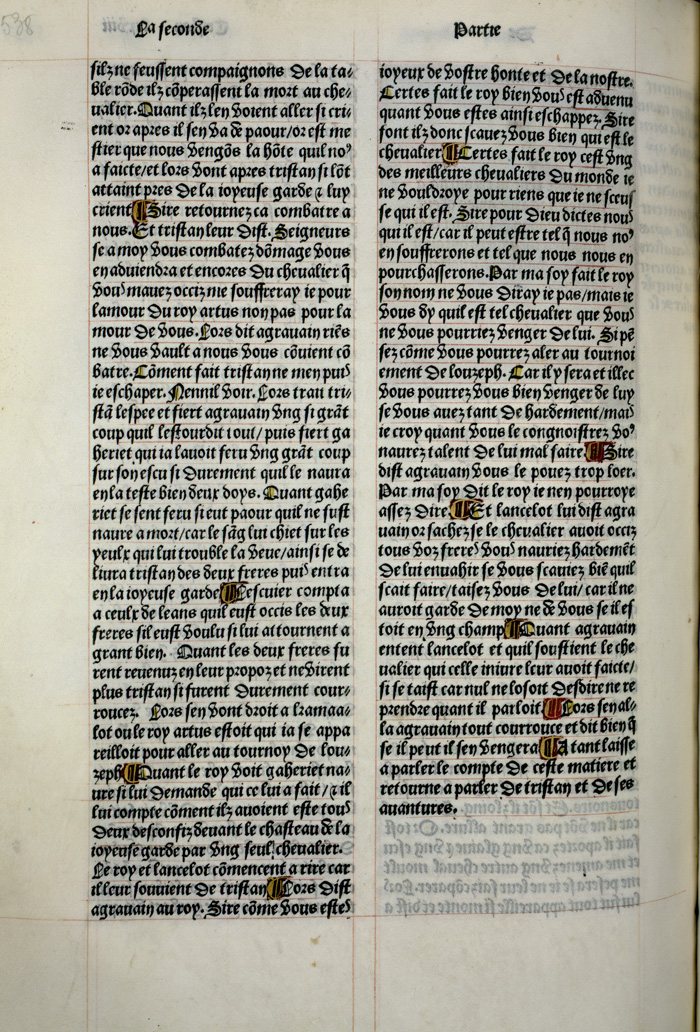 538
La seconde
silz ne feussent compaignons De la ta-
ble rõde ilz cõperassent la mort au che-
ualier. Quant ilz len voient aller si cri-
ent or apres il sen va de paour/or est me
stier que nous vengõs la hõte quil no⁹
a faicte/et lors vont apres tristan si lõt
attaint pres De la ioyeuse garde ⁊ luy
crient ¶ Sire retournez ca combatre a
nous. Et tristan leur dist. Seigneurs
se a moy vous combatez dõmage vous
en aduiendra et encores Du cheualier q̃
vou⁹ mauez occiz me souffreray ie pour
lamour Du roy artus non pas pour la
mour De vous. Lors dit agrauain riẽs
ne vous vault a nous vous cõuient cõ
batre. Cõment fait tristan ne men puis
ie eschaper. Nennil voir. Lors trait tri-
stã lespee et fiert agrauain vng si grãt
coup quil lestourdit tout/puis fiert ga
heriet qui ia lauoit feru vng grãt coup
sur son escu si Durement quil le naura
en la teste bien deux doys. Quant gahe
riet se sent feru si eut paour quil ne fust
naure a mort/car le sãg lui chiet sur les
yeulx qui lui trouble la veue/ainsi se de
liura tristan des deux freres puis entra
en la ioyeuse garde ¶ Lescuier compta
a ceulx de leans quil eust occis les deux
freres sil eust voulu si lui attournent a
grant bien. Quant les deux freres fu
rent reuenuz en leur propoz et ne virent
plus tristan si furent Durement cour-
roucez. Lors sen vont droit a kramaa-
lot ou le roy artus estoit qui ia se appa
reilloit pour aller au tournoy De lou-
zeph ¶ Quant le roy voit gaheriet na-
ure si lui Demande qui ce lui a fait/⁊ il
lui compte cõment ilz auoient este tous
Deux desconfiz deuant le chasteau de la
ioyeuse garde par vng seul cheualier.
Le roy et lancelot cõmencent a rire car
il leur souuient De tristan ¶ Lors Dist
agrauain au roy. Sire cõme vous estes
Partie
ioyeux de vostre honte et De la nostre.
Certes fait le roy bien vous est aduenu
quant vous estes ainsi eschappez. Sire
font ilz donc scauez vous bien qui est le
cheualier ¶ Certes fait le roy cest vng
des meilleurs cheualiers Du monde ie
ne vouldroye pour riens que ie ne sceus
se qui il est. Sire pour Dieu dictes nous
qui il est/car il peut estre tel q̃ nous no⁹
en souffrerons et tel que nous nous en
pourchasserons. Par ma foy fait le roy
son nom ne vous Diray ie pas/mais ie
vous dy quil est tel cheualier que vous
ne vous pourriez venger de lui. Si pẽ
sez cõme vous pourrez aler au tournoi
ement de louzeph. Car il y sera et illec
vous pourrez vous bien venger de luy
se vous auez tant De hardement/mais
ie croy quant vous le congnoistrez vo⁹
naurez talent De lui mal faire. ¶ Sire
dist agrauain vous le pouez trop loer.
Par ma foy Dit le roy ie nen pourroye
assez Dire. ¶ Et lancelot lui dist agra
uain or sachez se le cheualier auoit occiz
tous voz freres vous nauriez hardemẽt
De lui enuahir se vous scauiez biẽ quil
scait faire/taisez vous De lui/car il ne
auroit garde De moy ne de vous se il es
toit en vng champ ¶ Quant agrauain
entent lancelot et quil soustient le che
ualier qui celle iniure leur auoit faicte/
si se taist car nul ne losoit Desdire ne re
prendre quant il parloit. ¶ Lors sen al-
la agrauain tout courrouce et dit bien q̃
se il peut il sen vengera. ¶ A tant laisse
a parler le compte De ceste matiere et
retourne a parler De tristan et De ses
auantures.